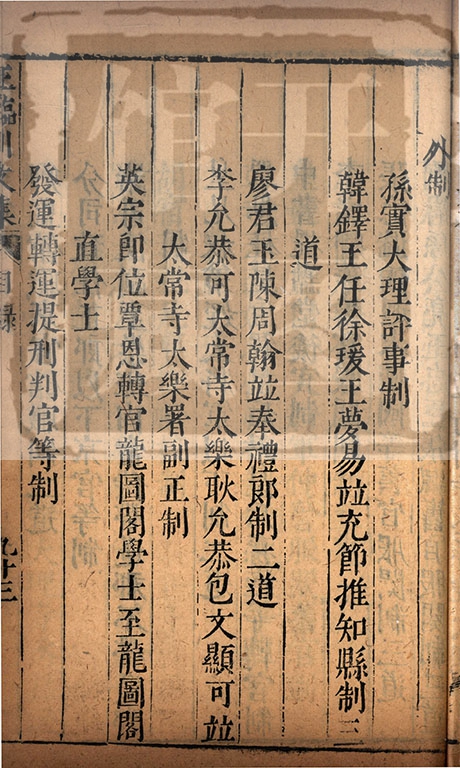 外制
孫賓大理評事制
韓鐸王任徐瑗王夢易竝充節推知縣制三
道
廖君玉陳周翰竝奉禮郎制二道
李允恭可太常寺太樂耿允恭包文顯可竝
太常寺太樂署副正制
英宗即位覃恩轉官龍圖閣學士至龍圖閣
直學士
發運轉運提刑判官等制
王臨川文集 目録 九十三